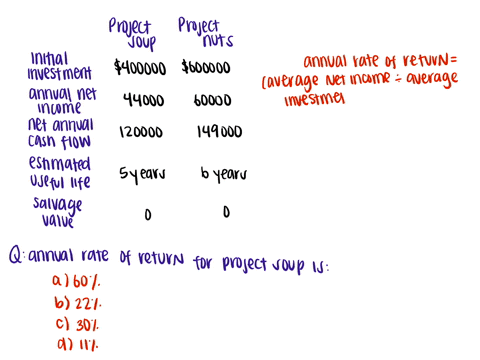 Project soup Project nuts
initial investment $400000 $600000
annual net income 44000 60000
net annual cash flow 120000 149000
estimated useful life 5 years 6 years
salvage value 0 0
annual rate of return =
(average net income ÷ average
investmer
Q: annual rate of return for project soup is:
a) 60%.
b) 22%.
c) 30%.
d) 11%.